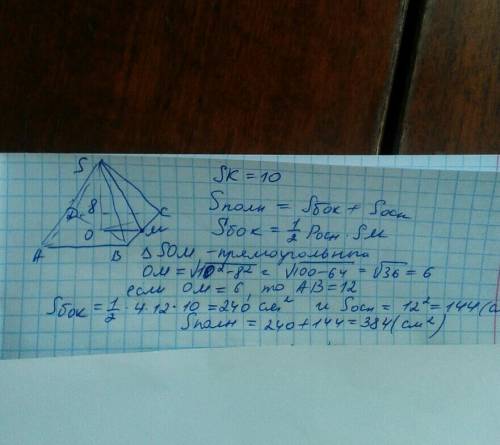 S
D 8 C
O M
A B
SK = 10
Sполн = Sбок + Sосн
Sбок = 1/2 Pосн · SM
Δ SOM - прямоугольный
OM = √10² - 8² = √100 - 64 = √36 = 6
если OM = 6, то AB = 12
Sбок = 1/2 · 4 · 12 · 10 = 240 см² и Sосн = 12² = 144 (с
Sполн = 240 + 144 = 384 (см²)